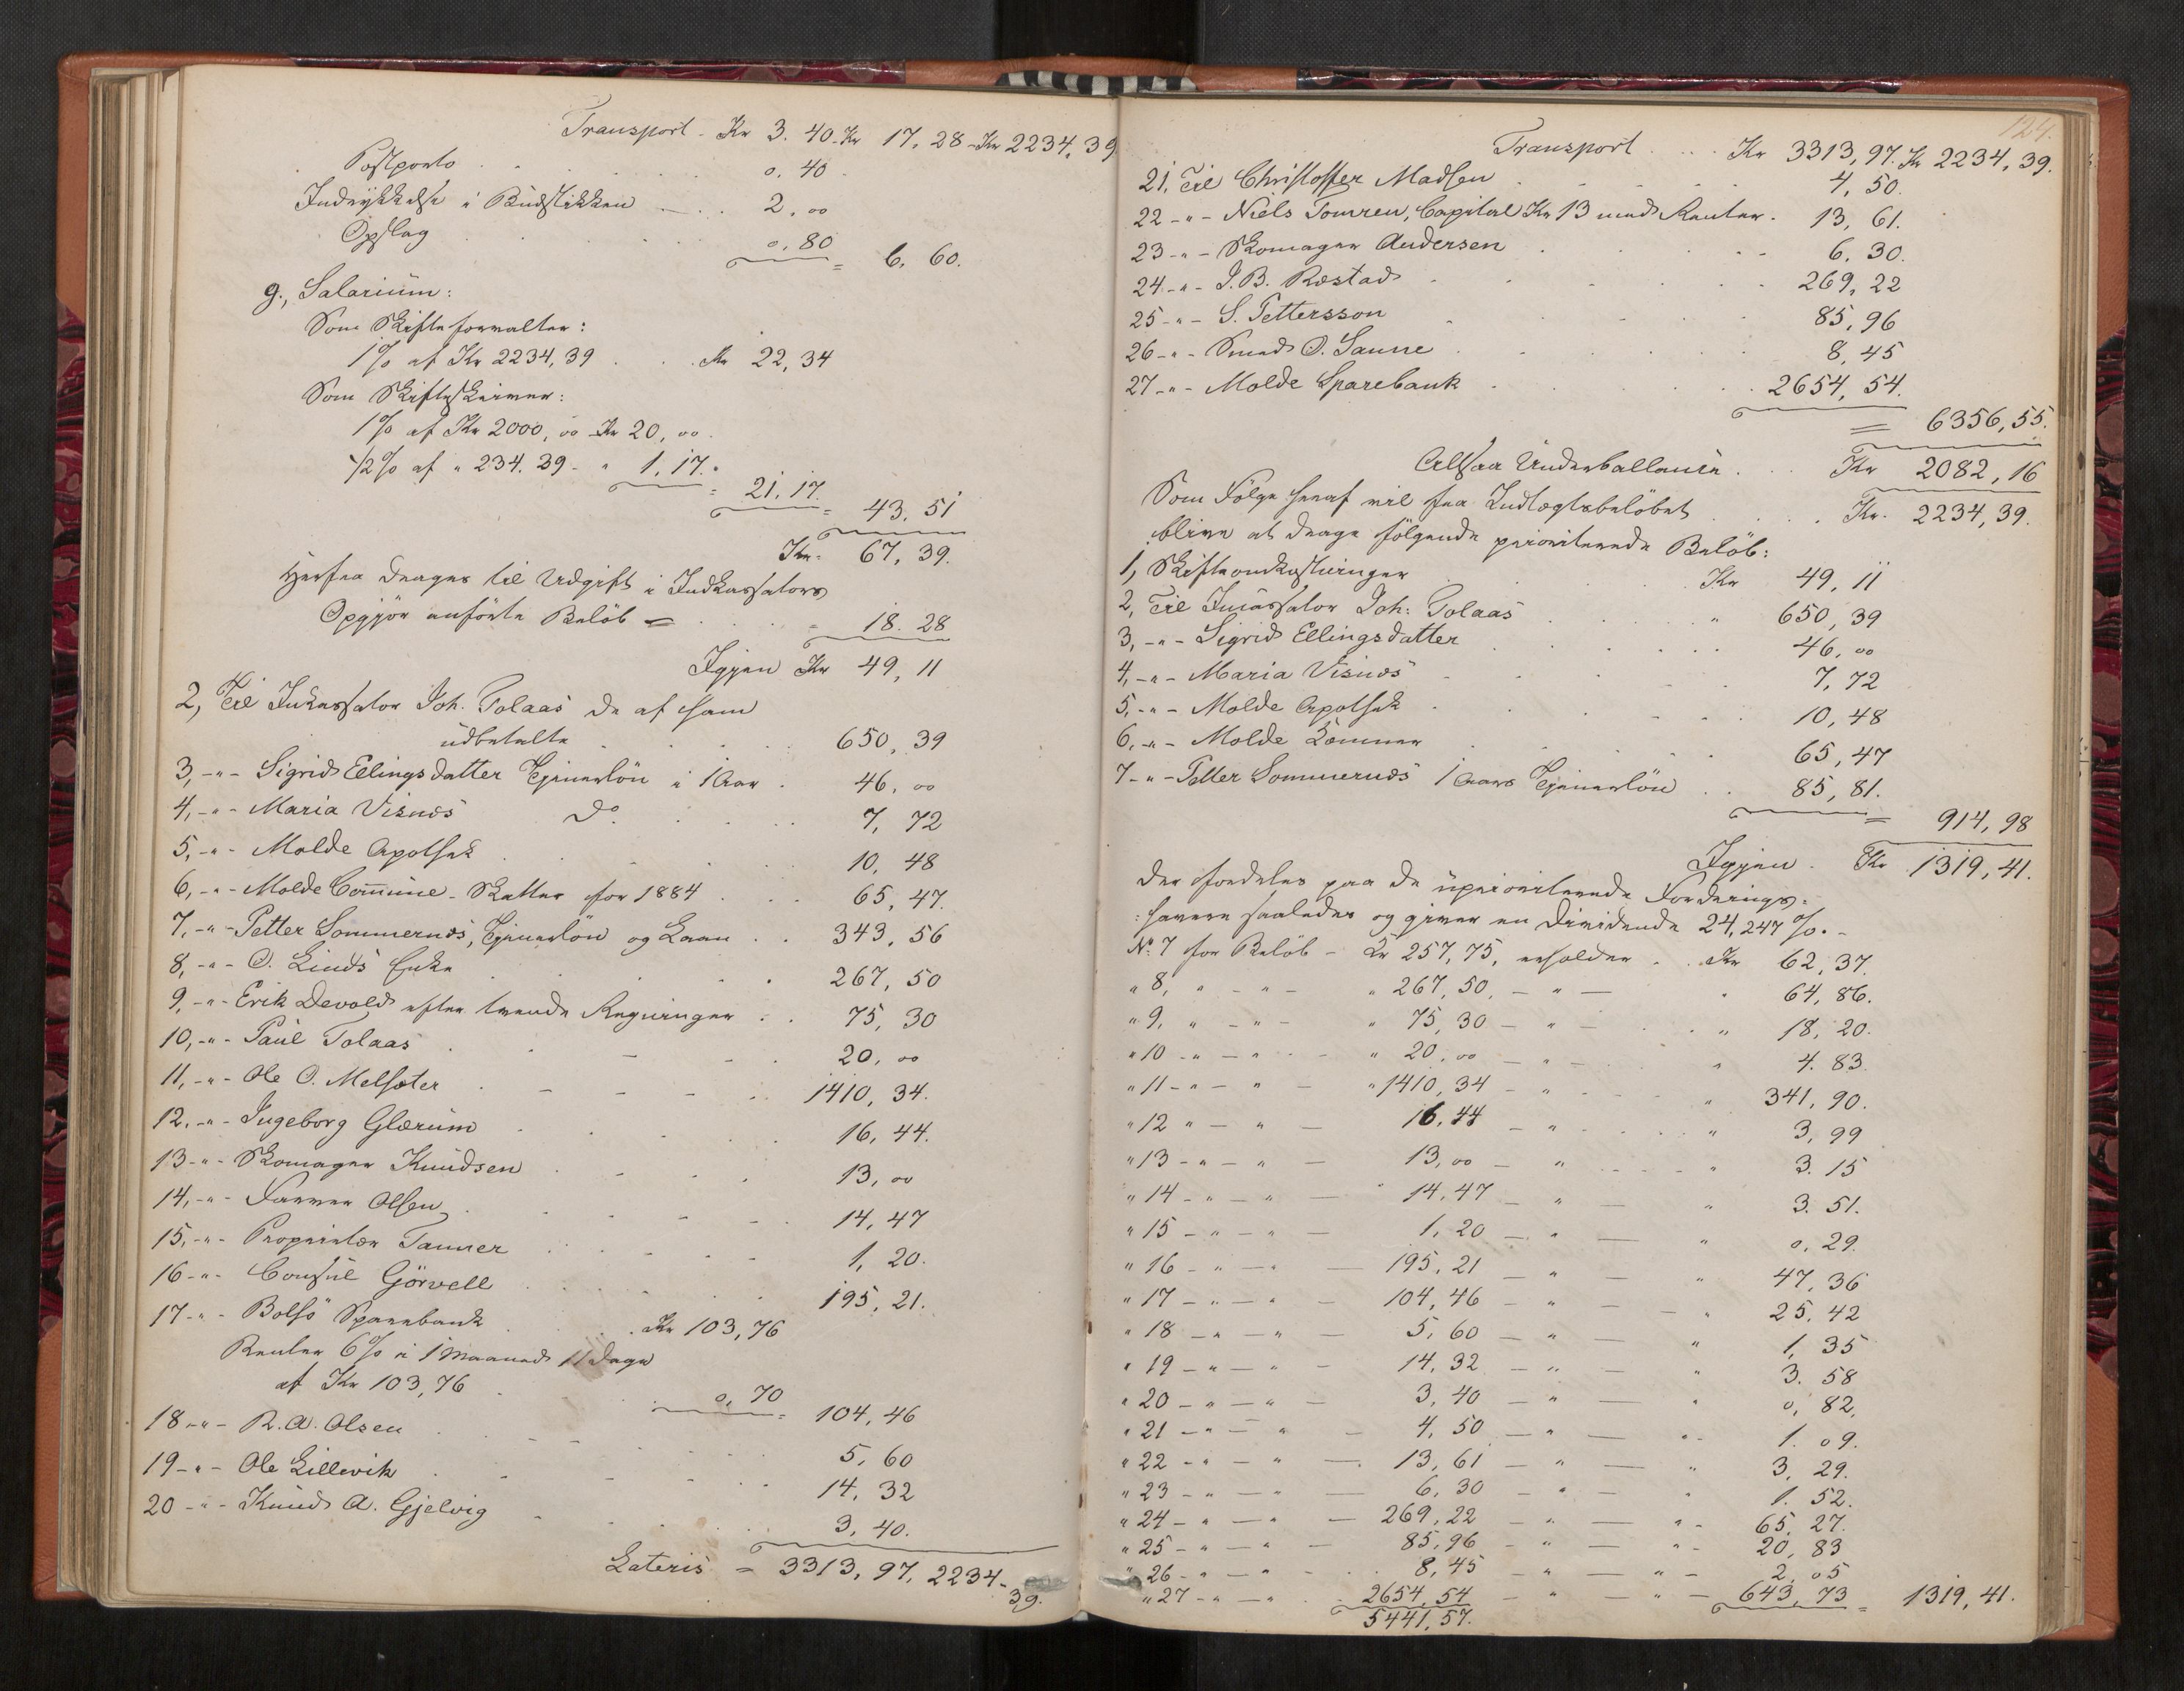 Transport - Kr 3. 40. Kr 17, 28 - Kr 2234, 39
Postporto . . 0. 40
Indrykkelse i Budstikken . . 2, 00
Opslag . . 0. 80 = 6, 60.
g., Salarium:
Som Skifteforvalter:
1% af Kr 2234,39 . . Kr 22, 34
Som Skifteskriver:
1% af Kr 2000, 00 Kr 20, 00.
1/2% af " 234. 39 - " 1. 17. = 21. 17. = 43. 51
Kr. 67, 39.
Herfra drages til Udgift i Indkassators
Opgjör anförte Belöb = . . 18. 28
Igjen Kr 49, 11
2, Til Inkassator Joh. Tolaas de af ham
udbetalte . . 650, 39
3, -"- Sigrid Ellingsdatter Tjenerlön i 1 Aar . 46, 00
4, -"- Maria Visnæs Do . . 7, 72
5, -"- Molde Apothek . . 10, 48
6, -"- Molde Comūne - Skatter for 1884 . . 65, 47.
7, -"- Petter Sommernæs, Tjenerlön og Laan . . 343, 56
8, -"- O. Linds Enke . . 267, 50
9, -"- Erik Devold efter tvende Regninger . . 75, 30
10, -"- Paul Tolaas . . 20, 00
11, -"- Ole O. Melsæter . . 1410, 34.
12. -"- Ingeborg Glærum . . 16, 44.
13 -"- Skomager Knudsen . . 13, 00
14, -"- Farver Olsen . . 14, 47
15, -"- Proprietær Tanner . . 1, 20.
16 -"- Consul Görvell . . 195, 21.
17 -"- Bolsö Sparebank . . Kr 103, 76
Renter 6% i 1 Maaned 11 Dage
af Kr 103, 76 . . 0, 70 = 104, 46
18 -"- R. A. Olsen . . 5, 60
19 -"- Ole Lillevik . . 14, 32
20 -"- Knud A. Gjelvig . . 3, 40.
Lateris = 3313, 97, 2234-
39.
124.
Transport . . Kr 3313, 97. Kr 2234, 39.
21, Til Christoffer Madsen . . 4, 50.
22 -"- Niels Tomren, Capital Kr 13 med Renter . 13, 61.
23 -"- Skomager Andersen . . 6, 30.
24 -"- J. B. Røstad . . 269, 22
25 -"- S. Pettersson . . 85, 96
26 -"- Smed O. Sanne . . 8, 45
27 -"- Molde Sparebank . . 2654, 54.
= 6356, 55.
Altsaa Underballance . . Kr 2082, 16
Som Fölge heraf vil fra Indtægtsbelöbet . . Kr. 2234, 39.
blive at drage fölgende prioriterede Belöb:
1, Skifteomkostninger . . Kr 49, 11
2, Til Incassator Joh: Tolaas . . " 650, 39
3, -"- Sigrid Ellingsdatter . . 46, 00
4, -"- Maria Visnæs . . 7, 72
5, -"- Molde Apothek . . 10, 48
6, -"- Molde Kæmner . . 65, 47
7 -"- Petter Sommernæs 1 Aars Tjenerlön . . 85, 81.
= 914, 98
Igjen . Kr 1319, 41.
der fordeles paa de uprioriterede Fordrings-
havere saaledes og giver en Dividende 24,247 %. -
No 7 for Belöb - Kr 257, 75, erholder . . Kr 62, 37.
" 8, " - " - " 267, 50, - " - " 64, 86.
" 9, " - " - " 75, 30 - " - " 18, 20.
" 10 - " - " - " 20, 00 - " - " 4. 83.
" 11 - " - " - " 1410, 34 - " - " 341, 90.
" 12 " - " - 16, 44 - " - " 3, 99
" 13 - " - " - 13, 00 - " - " 3. 15
" 14 - " - " - 14, 47 - " - " 3. 51.
" 15 - " - " - 1, 20 - " - " 0, 29.
" 16 - " - " - 195, 21 - " - " 47, 36
" 17 - " - " - 104, 46 - " - " 25, 42
" 18 - " - " - 5, 60 - " - " 1, 35
" 19 - " - " - 14, 32 - " - " 3. 58
" 20 - " - " - 3, 40 - " - " 0, 82,
" 21 - " - " - 4, 50 - " - " 1. 09.
" 22 - " - " - 13, 61 - " - " 3, 29.
" 23 - " - " - 6, 30 - " - " 1. 52.
" 24 - " - " - 269, 22 - " - " 65, 27.
" 25 - " - " - 85, 96 - " - " 20, 83
" 26 - " - " - 8, 45 - " - " 2, 05
" 27 - " - " . 2654, 54 - " - " 643, 73 = 1319, 41.
5441, 57.